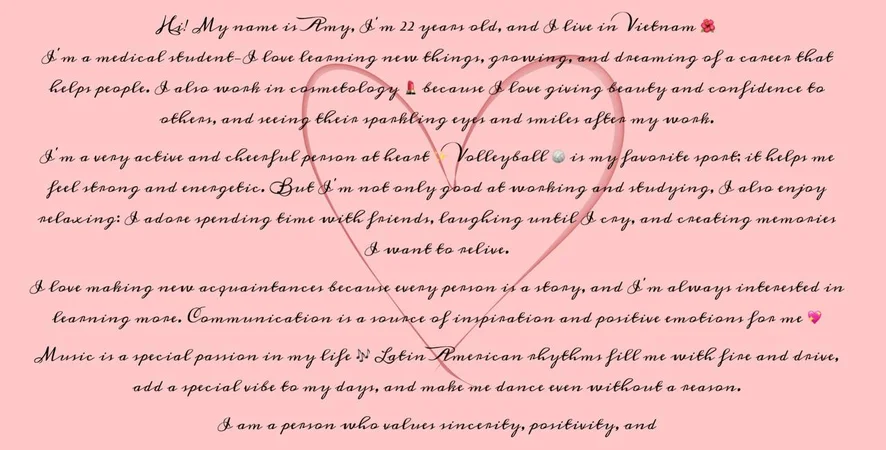 Hi! My name is Amy, I'm 22 years old, and I live in Vietnam 🌺
I'm a medical student-I love learning new things, growing, and dreaming of a career that
helps people. I also work in cosmetology 💄 because I love giving beauty and confidence to
others, and seeing their sparkling eyes and smiles after my work.
I'm a very active and cheerful person at heart ✨ Volleyball 🏐 is my favorite sport; it helps me
feel strong and energetic. But I'm not only good at working and studying, I also enjoy
relaxing: I adore spending time with friends, laughing until I cry, and creating memories
I want to relive.
I love making new acquaintances because every person is a story, and I'm always interested in
learning more. Communication is a source of inspiration and positive emotions for me 💖
Music is a special passion in my life 🎶 Latin American rhythms fill me with fire and drive,
add a special vibe to my days, and make me dance even without a reason.
I am a person who values sincerity, positivity, and